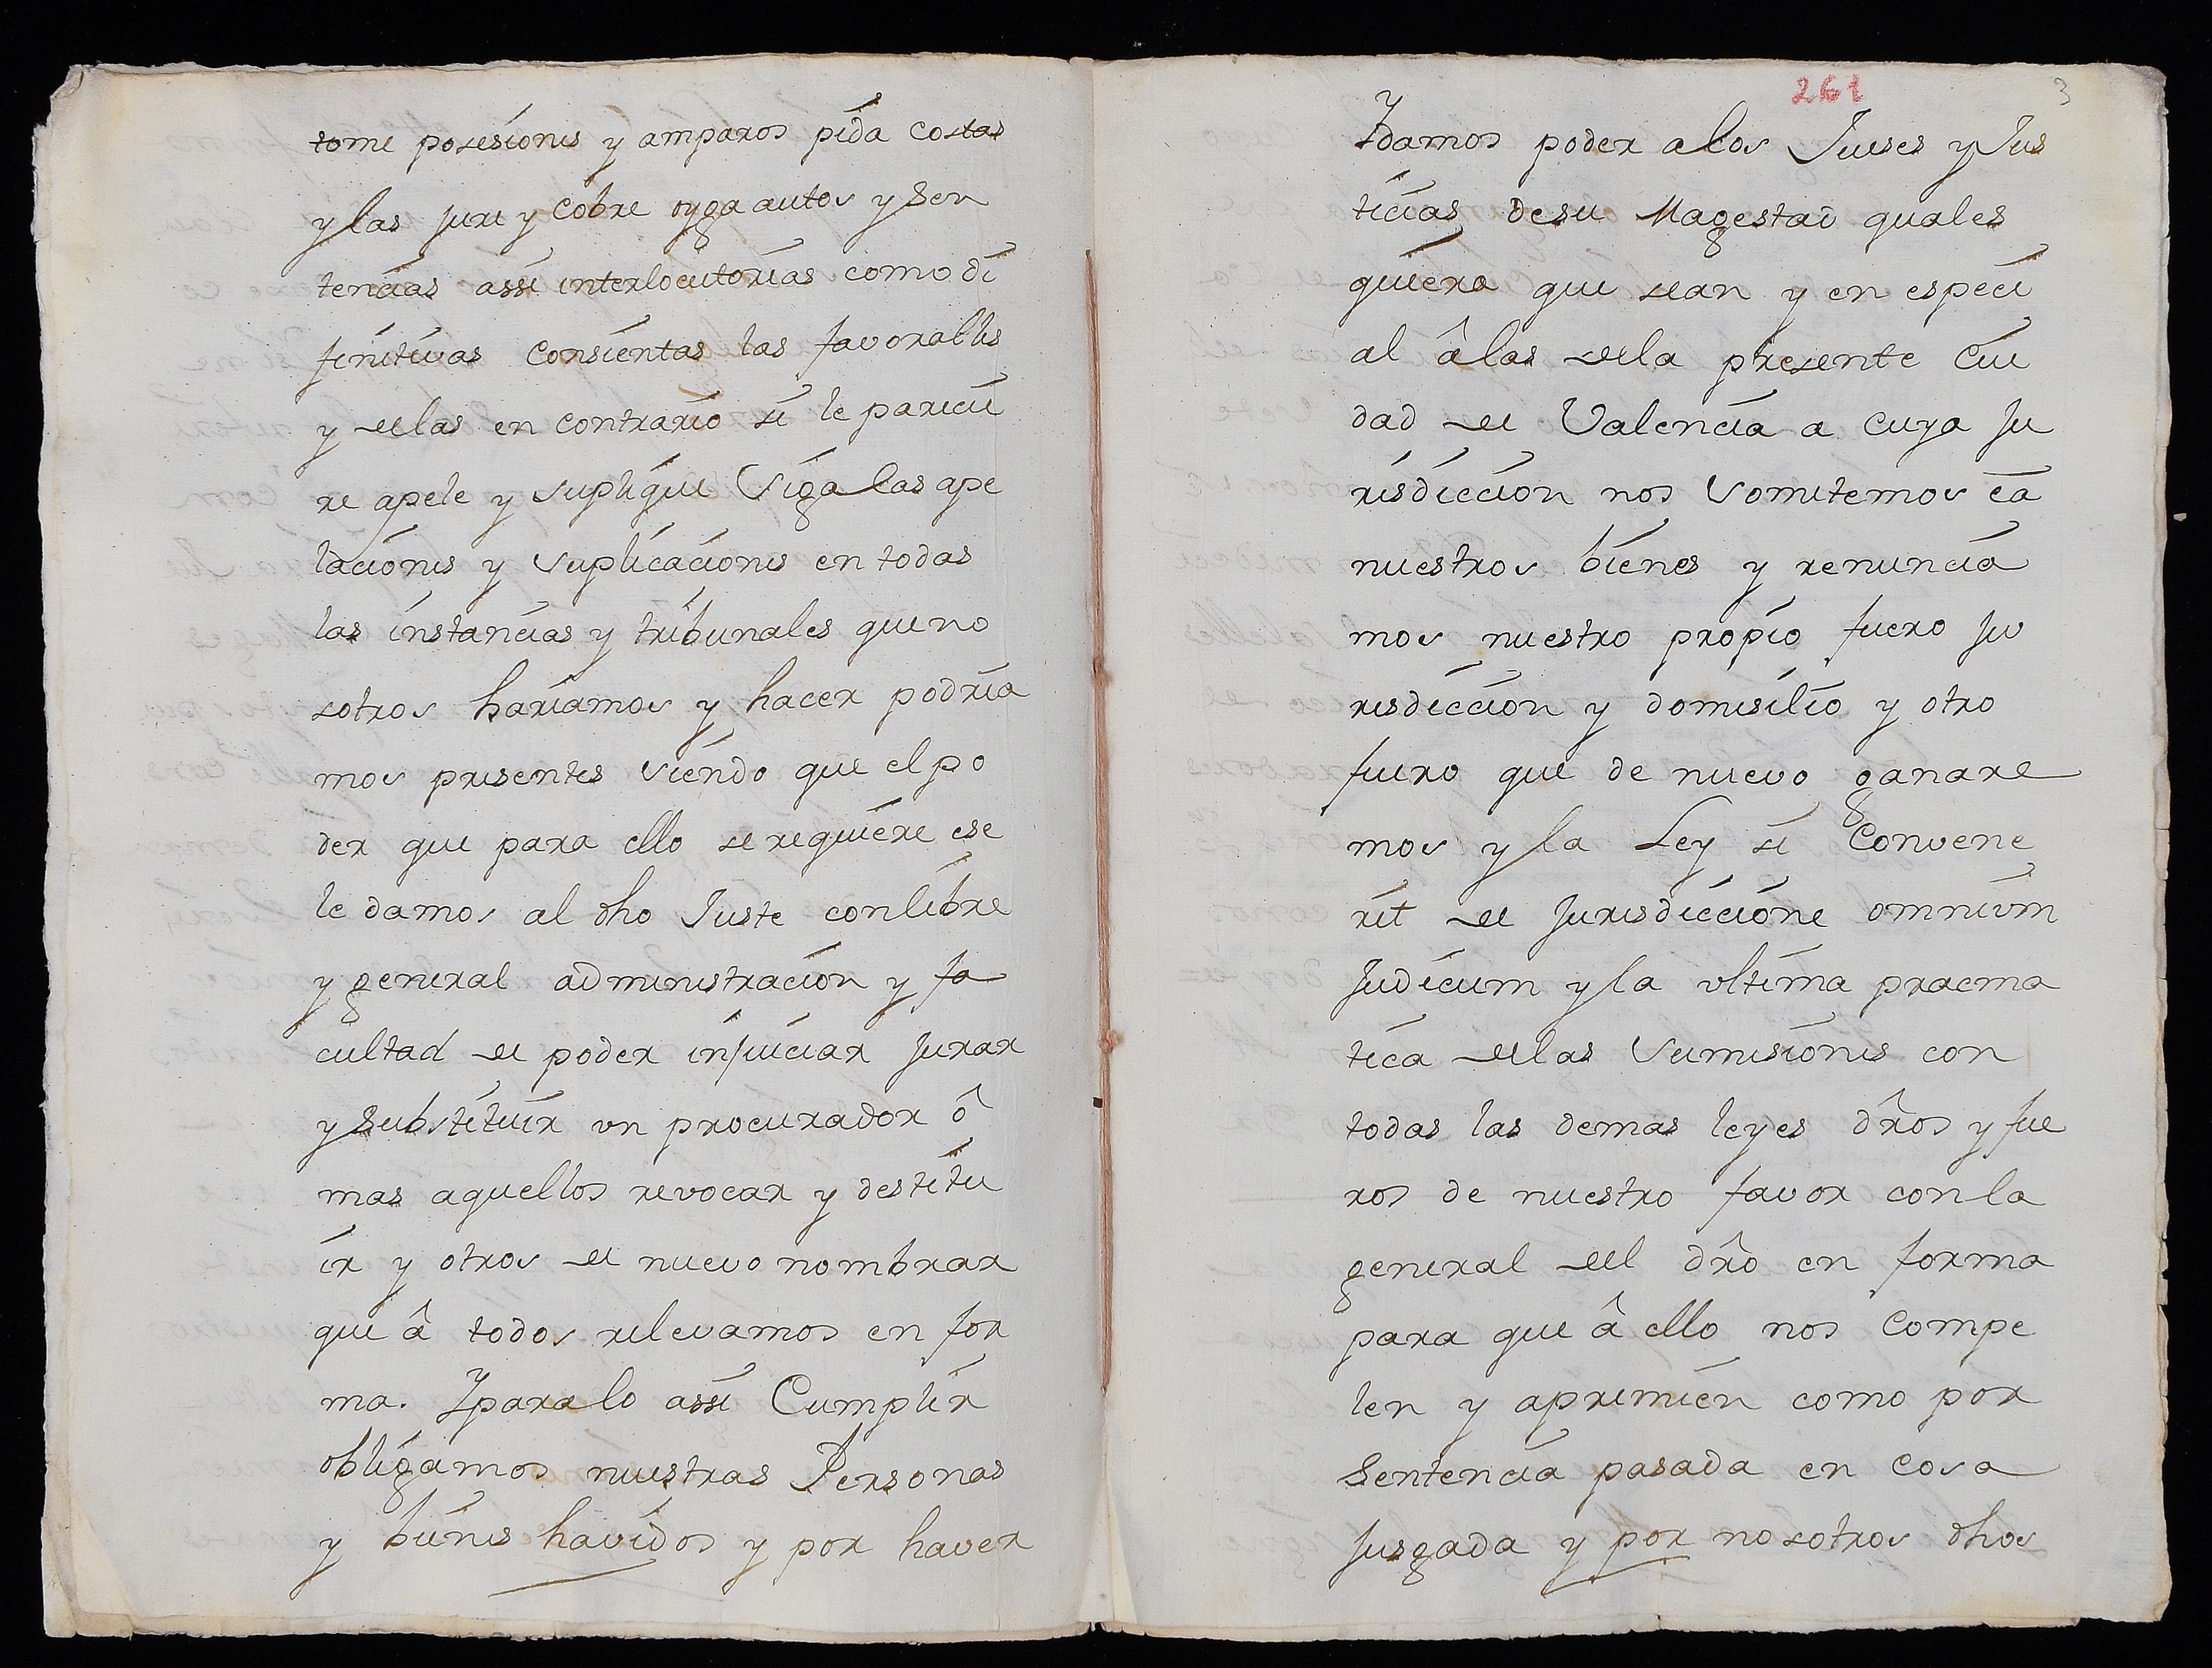 tome posesiones y amparos pida costas
y las jure y cobre oyga autos y sen
tencias assi interlocutorias como di
finitivas consientas las favorables
y de las en contrario si le pareci
re apele y suplique siga las ape
laciones y suplicaciones en todas
las instancias y tribunales que no
sotros hariamos y hacer podria
mos presentes siendo que el po
der que para ello se requiere ese
le damos al dho Juste con libre
y general administracion y fa
cultad de poder injuiciar jurar
y substituir un procurador ô
mas aquellos revocar y destitu
ir y otros de nuevo nombrar
que â todos relevamos en for
ma. Y para lo assi Cumplir
obligamos nuestras Personas
y bienes havidos y por haver
261
3
Y damos poder a los Jueses y Jus
ticias de su Magestad quales
quiera que sean y en especi
al â las de la presente Ciu
dad de Valencia a cuya ju
risdiccion nos somitemos ea
nuestros bienes y renuncia
mos nuestro propio fuero ju
risdiccion y domisilio y otro
fuero que de nuevo ganare
mos y la Ley si Convene
rit de Jurisdiccione omnium
Judicum y la ultima pracma
tica de las sumisiones con
todas las demas leyes dr̃os y fue
ros de nuestro favor con la
general del dr̃o en forma
para que â ello nos compe
len y apremien como por
sentencia pasada en cosa
Jusgada y por nosotros dhos